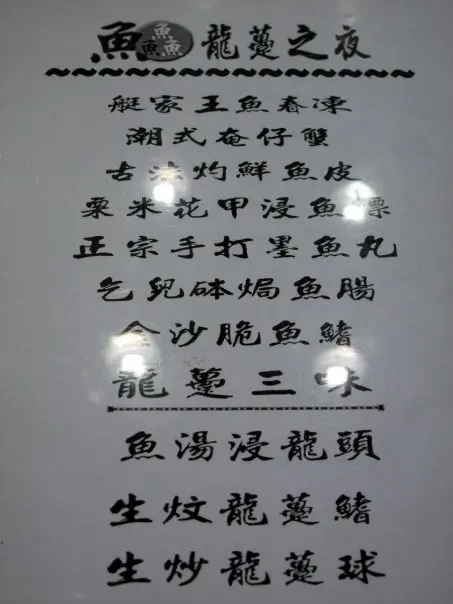 魚 魚魚魚 龍躉之夜
艇家王魚春凍
潮式奄仔蟹
古法灼鮮魚皮
粟米花甲浸魚鏢
正宗手打墨魚丸
乞兒砵焗魚腸
金沙脆魚鰭
龍躉三味
魚湯浸龍頭
生炆龍躉鰭
生炒龍躉球